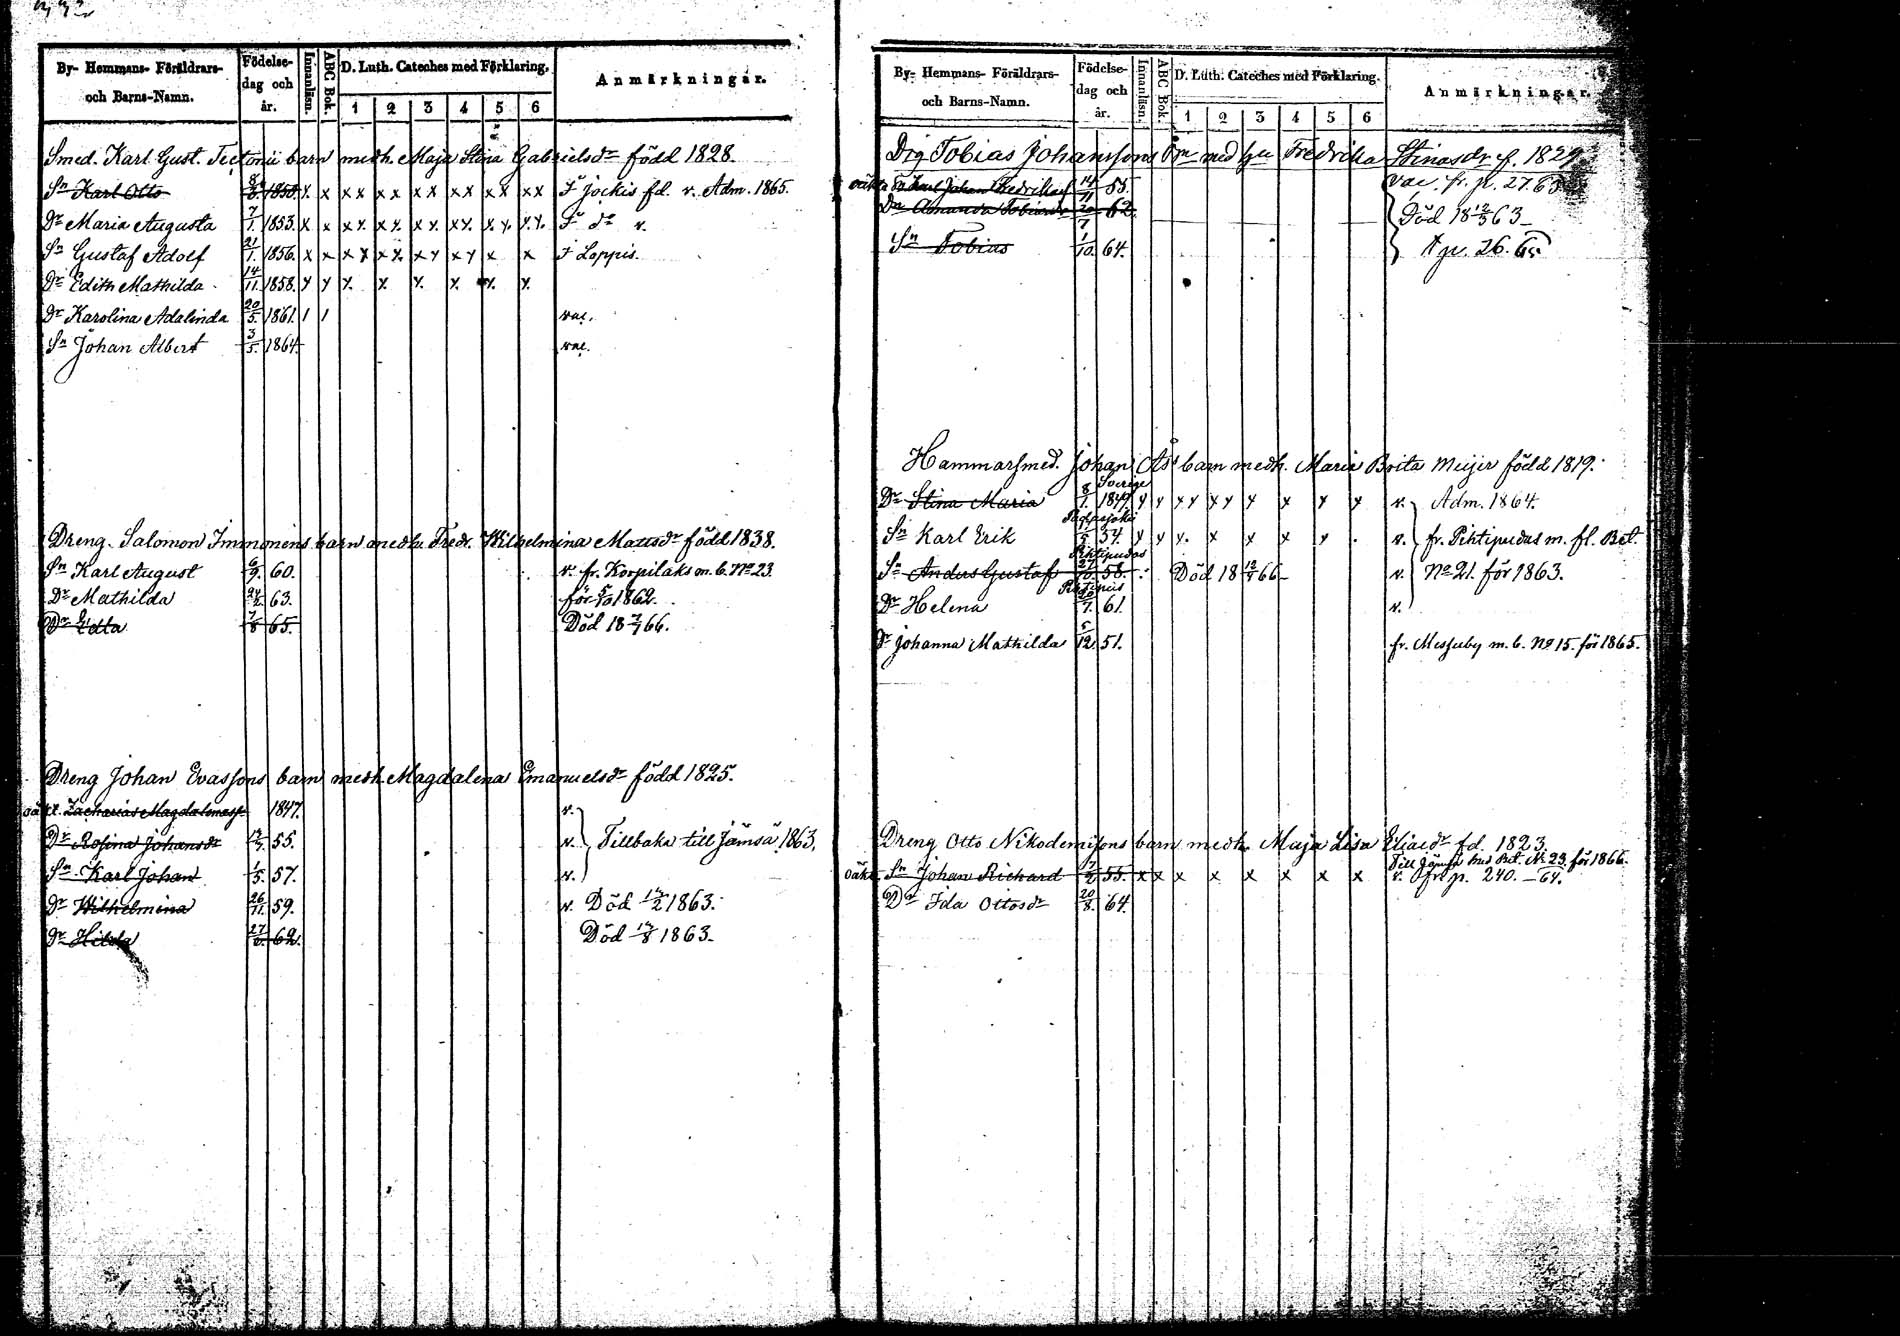 By- Hemmans- Föräldrars- och Barns-Namn. Födelse-dag och år. Innanläsn. ABC Bok. D. Luth. Cateches med Förklaring. 1 2 3 4 5 6 Anmärkningar.
Smed. Karl Gust. barn medh. Maja Stina Gabrielsdr född 1828.
Sn Karl Otto 1850. x x xx xx xx xx xx xx F Jockis fd. v. Adm. 1865.
Dr Maria Augusta 7/1. 1853. x x xx xx xx xx xx xx F do v.
Sn Gustaf Adolf 21/1. 1856. x x xx xx xx xx x x F Loppis.
Dr Edith Mathilda 14/11. 1858. x x x x x x x x
Dr Karolina Adalinda 20/5. 1861. 1 1 vac.
Sn Johan Albert 3/5. 1864. vac.
Dreng. Salomon Immonens barn medh. Fredr. Wilhelmina Mattsdr född 1838.
Sn Karl August 6/9. 60. v. fr. Korpilaks m. b. No 23.
Dr Mathilda 24/2. 63. för 5/10 1862.
Dr Edla 7/8 65. Död 18 7/1 66.
Dreng Johan Evassons barn medh. Magdalena Emanuelsdr född 1825.
oäkt. Zacharias Magdalenass. 1847. v.
Dr Rosina Johansdr 55. v. Tillbaka till Jämsä 1863.
Sn Karl Johan 1/5. 57. v.
Dr Wilhelmina 26/11. 59. v. Död 1863.
Dr Hilda 62. Död 1863.
By- Hemmans- Föräldrars- och Barns-Namn. Födelse-dag och år. Innanläsn. ABC Bok. D. Luth. Cateches med Förklaring. 1 2 3 4 5 6 Anmärkningar.
Drg Tobias Johanssons Bn med hu Fredrika Stinasdr f. 1829
oäkta Johan Fredrikas 14/11 55. vac. fr. p. 27.
Dr Amanda Tobiasdr 20/7 62. Död 18 12/3 63
Sn Tobias 1/10. 64. p. 26. 65
Hammarsmed. Johan Ås barn medh. Maria Brita Meijer född 1819.
Sverige
Dr Stina Maria 8/1. 1849. x x xx xx x x x x v. Adm. 1864.
Padasjoki
Sn Karl Erik 54. x x x. x x x x . v. fr. Pihtipudas m. fl. Bet.
Pihtipudas
Sn Anders Gustaf 27/10. 58. Död 18 12/4 66 v. No 21. för 1863.
Dr Helena 61. v.
Dr Johanna Mathilda 5/12. 51. fr. Messuby m. b. No 15. för 1865.
Dreng Otto Nikodemissons barn medh. Maja Lisa Eliaedr fd. 1823.
Till Jämsä Bet. No 23. för 1866.
oäkt. Sn Johan Richard 7/2 55. x x x x x x x x v. fr. p. 240. 64.
Dr Ida Ottosdr 20/8. 64.